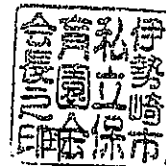 伊勢崎市
私立保
育園会
会長之印